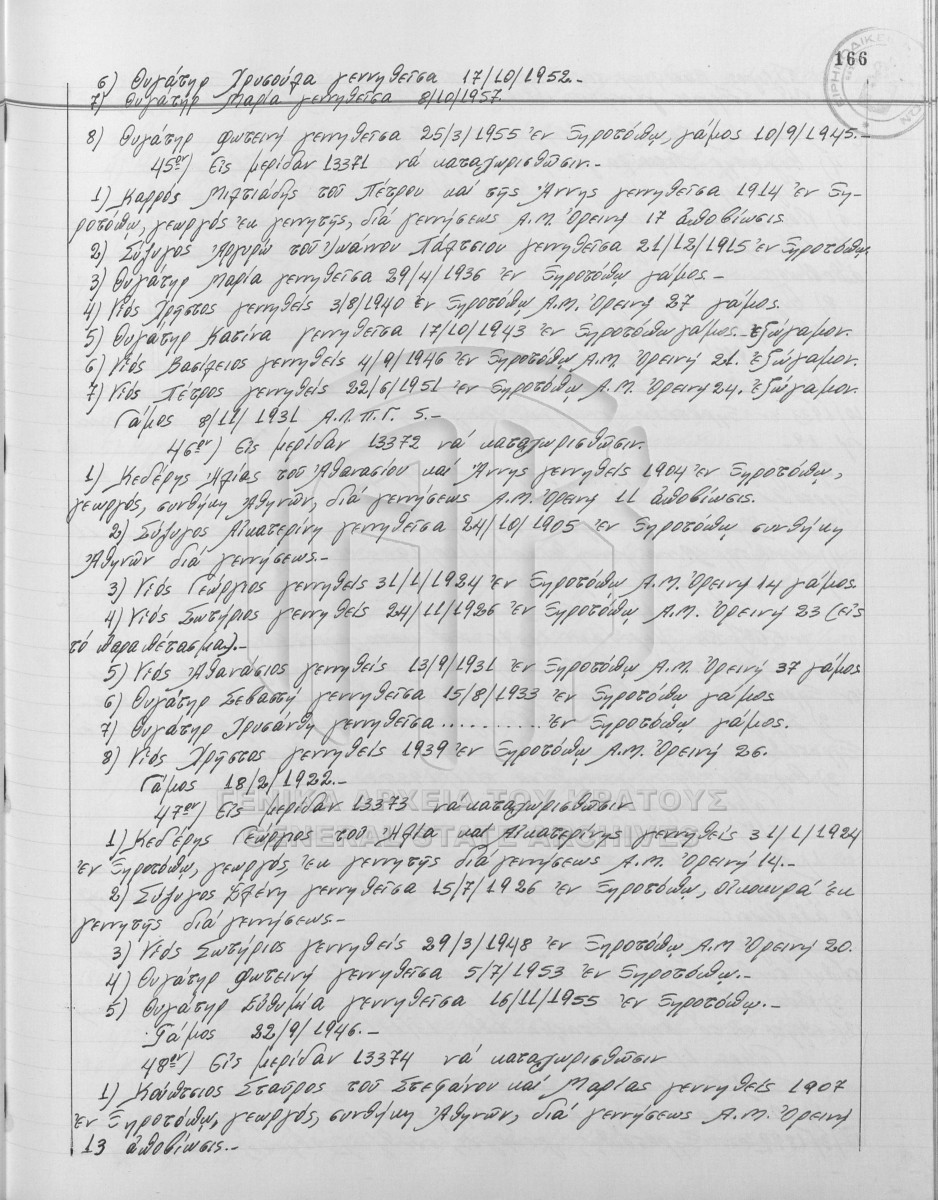 166
6) Θυγάτηρ Χρυσούλα γεννηθεῖσα 17/10/1952.-
7) Θυγάτηρ Μαρία γεννηθεῖσα 8/10/1957.
8) Θυγάτηρ Φωτεινή γεννηθεῖσα 25/3/1955 ἐν Ξηροτόπῳ, γάμος 10/9/1945.-
45ον) Εἰς μερίδαν 13371 νά καταχωρισθῶσιν.-
1) Καρρός Μιλτιάδης τοῦ Πέτρου καί τῆς Ἄννης γεννηθεῖσα 1914 ἐν Ξη-
ροτόπῳ, γεωργός ἐκ γεννητῆς, διά γεννήσεως Α.Μ. Ὀρεινή 17 ἀποβίωσις
2) Σύζυγος Ἀργυρώ τοῦ Ἰωάννου Πάλτσιου γεννηθεῖσα 21/12/1915 ἐν Ξηροτόπῳ.
3) Θυγάτηρ Μαρία γεννηθεῖσα 29/4/1936 ἐν Ξηροτόπῳ γάμος.-
4) Υἱός Χρῆστος γεννηθείς 3/8/1940 ἐν Ξηροτόπῳ Α.Μ. Ὀρεινή 27 γάμος.
5) Θυγάτηρ Κατίνα γεννηθεῖσα 17/10/1943 ἐν Ξηροτόπῳ γάμος. Ἐξώγαμον.
6) Υἱός Βασίλειος γεννηθείς 4/9/1946 ἐν Ξηροτόπῳ Α.Μ. Ὀρεινή 21. Ἐξώγαμον.
7) Υἱός Πέτρος γεννηθείς 22/6/1951 ἐν Ξηροτόπῳ Α.Μ. Ὀρεινή 24. Ἐξώγαμον.
Γάμος 8/11/1931 Α.Λ.Π.Γ. 5.-
46ον) Εἰς μερίδαν 13372 νά καταχωρισθῶσιν.
1) Κεδέρης Ἠλίας τοῦ Ἀθανασίου καί Ἄννης γεννηθείς 1904 ἐν Ξηροτόπῳ,
γεωργός, συνθήκη Ἀθηνῶν, διά γεννήσεως Α.Μ. Ὀρεινή 11 ἀποβίωσις.
2) Σύζυγος Αἰκατερίνη γεννηθεῖσα 24/10/1905 ἐν Ξηροτόπῳ συνθήκη
Ἀθηνῶν διά γεννήσεως.-
3) Υἱός Γεώργιος γεννηθείς 31/1/1924 ἐν Ξηροτόπῳ Α.Μ. Ὀρεινή 14 γάμος.
4) Υἱός Σωτήριος γεννηθείς 24/11/1926 ἐν Ξηροτόπῳ Α.Μ. Ὀρεινή 23 (εἰς
τό παραπέτασμα).-
5) Υἱός Ἀθανάσιος γεννηθείς 13/9/1931 ἐν Ξηροτόπῳ Α.Μ. Ὀρεινή 37 γάμος
6) Θυγάτηρ Σεβαστή γεννηθεῖσα 15/8/1933 ἐν Ξηροτόπῳ γάμος
7) Θυγάτηρ Χρυσάνθη γεννηθεῖσα .......... ἐν Ξηροτόπῳ γάμος.
8) Υἱός Χρῆστος γεννηθείς 1939 ἐν Ξηροτόπῳ Α.Μ. Ὀρεινή 26.
Γάμος 18/2/1922.-
ΓΕΝΙΚΑ ΑΡΧΕΙΑ ΤΟΥ ΚΡΑΤΟΥΣ
47ον) Εἰς μερίδαν 13373 νά καταχωρισθῶσιν
GENERAL STATE ARCHIVES
1) Κεδέρης Γεώργιος τοῦ Ἠλία καί Αἰκατερίνης γεννηθείς 31/1/1924
ἐν Ξηροτόπῳ, γεωργός, ἐκ γεννητῆς διά γενήσεως Α.Μ. Ὀρεινή 14.-
2) Σύζυγος Ἑλένη γεννηθεῖσα 15/7/1926 ἐν Ξηροτόπῳ, οἰκοκυρά ἐκ
γεννητῆς διά γεννήσεως.-
3) Υἱός Σωτήριος γεννηθείς 29/3/1948 ἐν Ξηροτόπῳ Α.Μ Ὀρεινή 20.
4) Θυγάτηρ Φωτεινή γεννηθεῖσα 5/7/1953 ἐν Ξηροτόπῳ.-
5) Θυγάτηρ Εὐθυμία γεννηθεῖσα 16/11/1955 ἐν Ξηροτόπῳ.-
Γάμος 22/9/1946.-
48ον) Εἰς μερίδαν 13374 νά καταχωρισθῶσιν
1) Κούπτσιος Σταῦρος τοῦ Στεφάνου καί Μαρίας γεννηθείς 1907
ἐν Ξηροτόπῳ, γεωργός, συνθήκη Ἀθηνῶν, διά γεννήσεως Α.Μ. Ὀρεινή
13 ἀποβίωσις.-